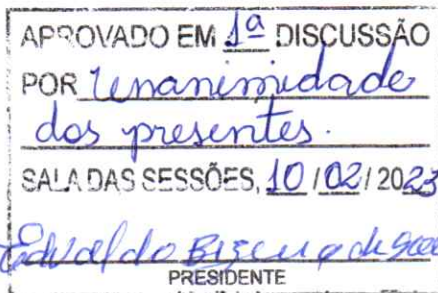 APROVADO EM 1ª DISCUSSÃO
POR Unanimidade
dos presentes.
SALA DAS SESSÕES, 10 / 02 / 2023
Edvaldo
PRESIDENTE